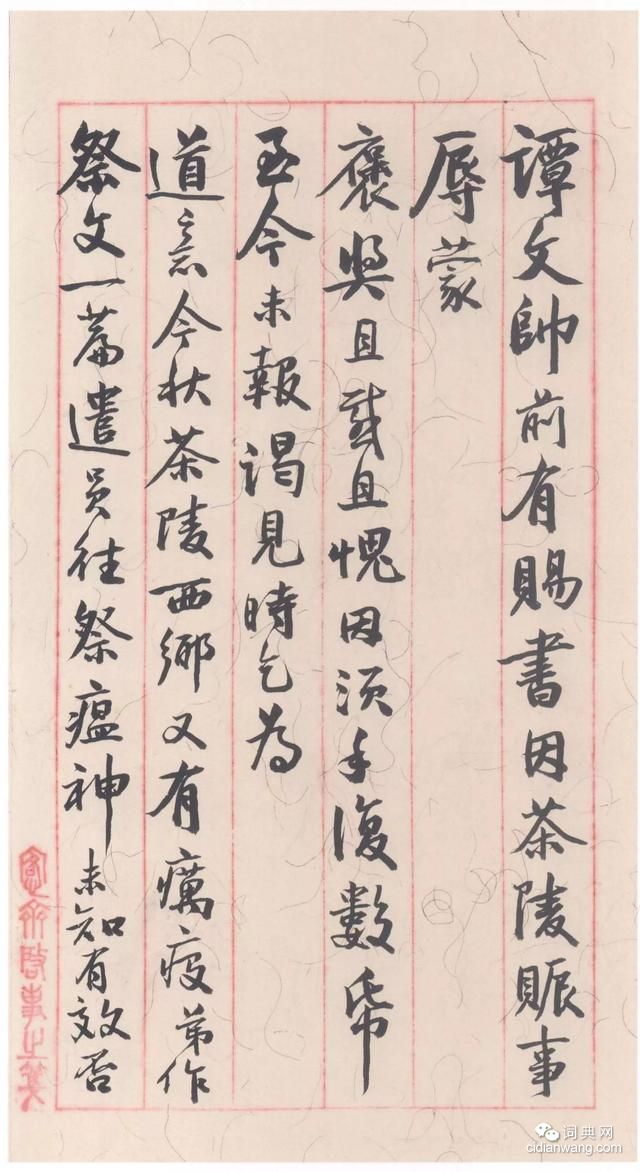 譚文帥前有賜書因茶陵賑事
辱蒙
褒奬且感且愧因須手復數帋
至今未報謁見時乞為
道意今秋茶陵西鄉又有癘疫弟作
祭文一篇遣員往祭瘟神未知有效否
愙齋啓事之箋
词典网
cidianwang.com